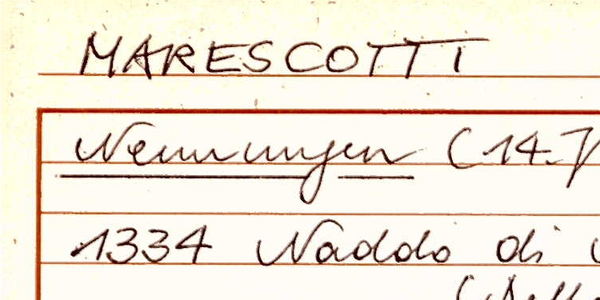 MARESCOTTI
Nennungen (14.
1334 Naddo di